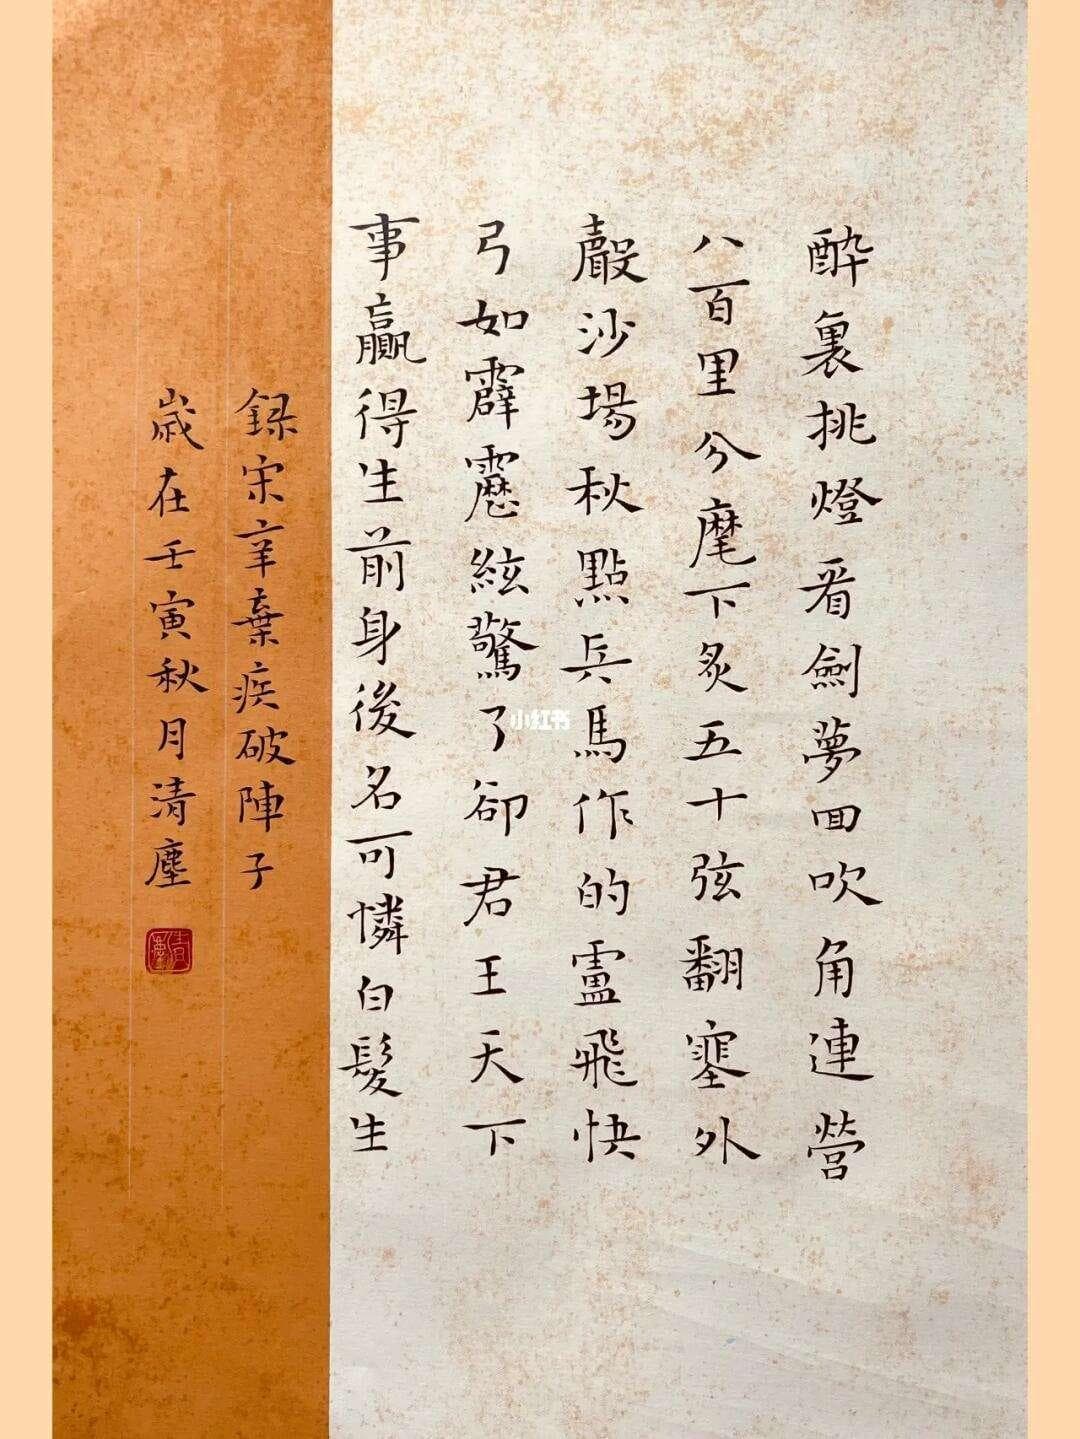 醉裏挑燈看劍夢回吹角連營
八百里分麾下炙五十弦翻塞外
聲沙場秋點兵馬作的盧飛快
弓如霹靂絃驚了卻君王天下
事贏得生前身後名可憐白髮生
錄宋辛棄疾破陣子
歲在壬寅秋月清塵
清塵
小红书